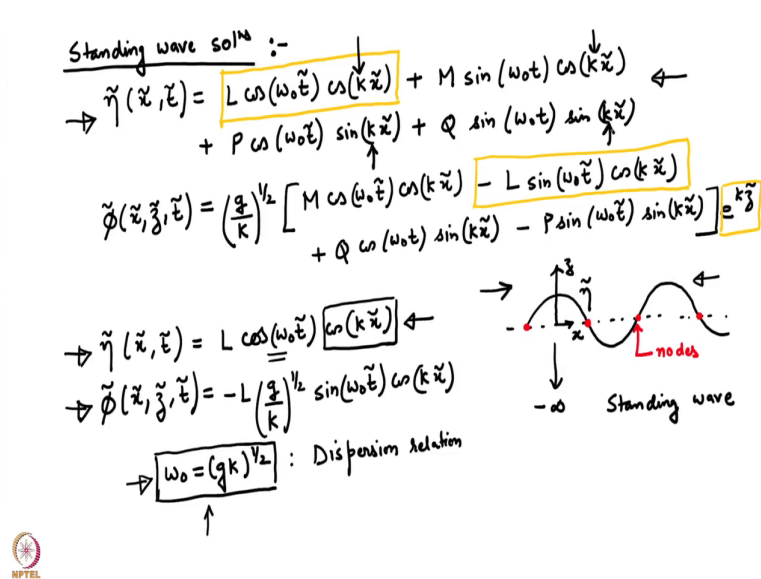 Standing wave solⁿˢ :-
η̃(x̃,t̃) = L cos(ω₀t̃) cos(kx̃) + M sin(ω₀t) cos(kx̃)
+ P cos(ω₀t̃) sin(kx̃) + Q sin(ω₀t) sin(kx̃)
φ̃(x̃,z̃,t̃) = (g/k)^1/2 [M cos(ω₀t̃) cos(kx̃) - L sin(ω₀t̃) cos(kx̃)
+ Q cos(ω₀t) sin(kx̃) - P sin(ω₀t̃) sin(kx̃)] e^kz̃
z
η̃
x
nodes
-∞ Standing wave
η̃(x̃,t̃) = L cos(ω₀t̃) cos(kx̃)
φ̃(x̃,z̃,t̃) = -L (g/k)^1/2 sin(ω₀t̃) cos(kx̃)
ω₀ = (gk)^1/2 : Dispersion relation
NPTEL